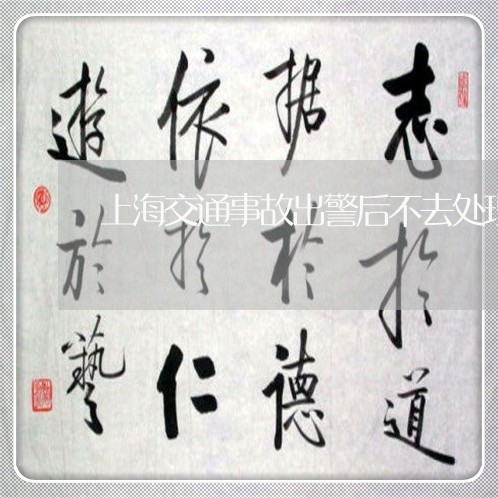 志於道
据於德
依於仁
遊於藝
上海交通事故出警后不去处